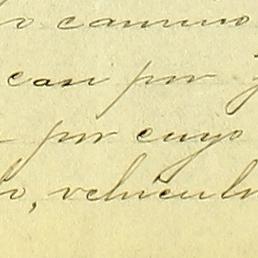 camino
casi por
por cuyo
lo, vehicul